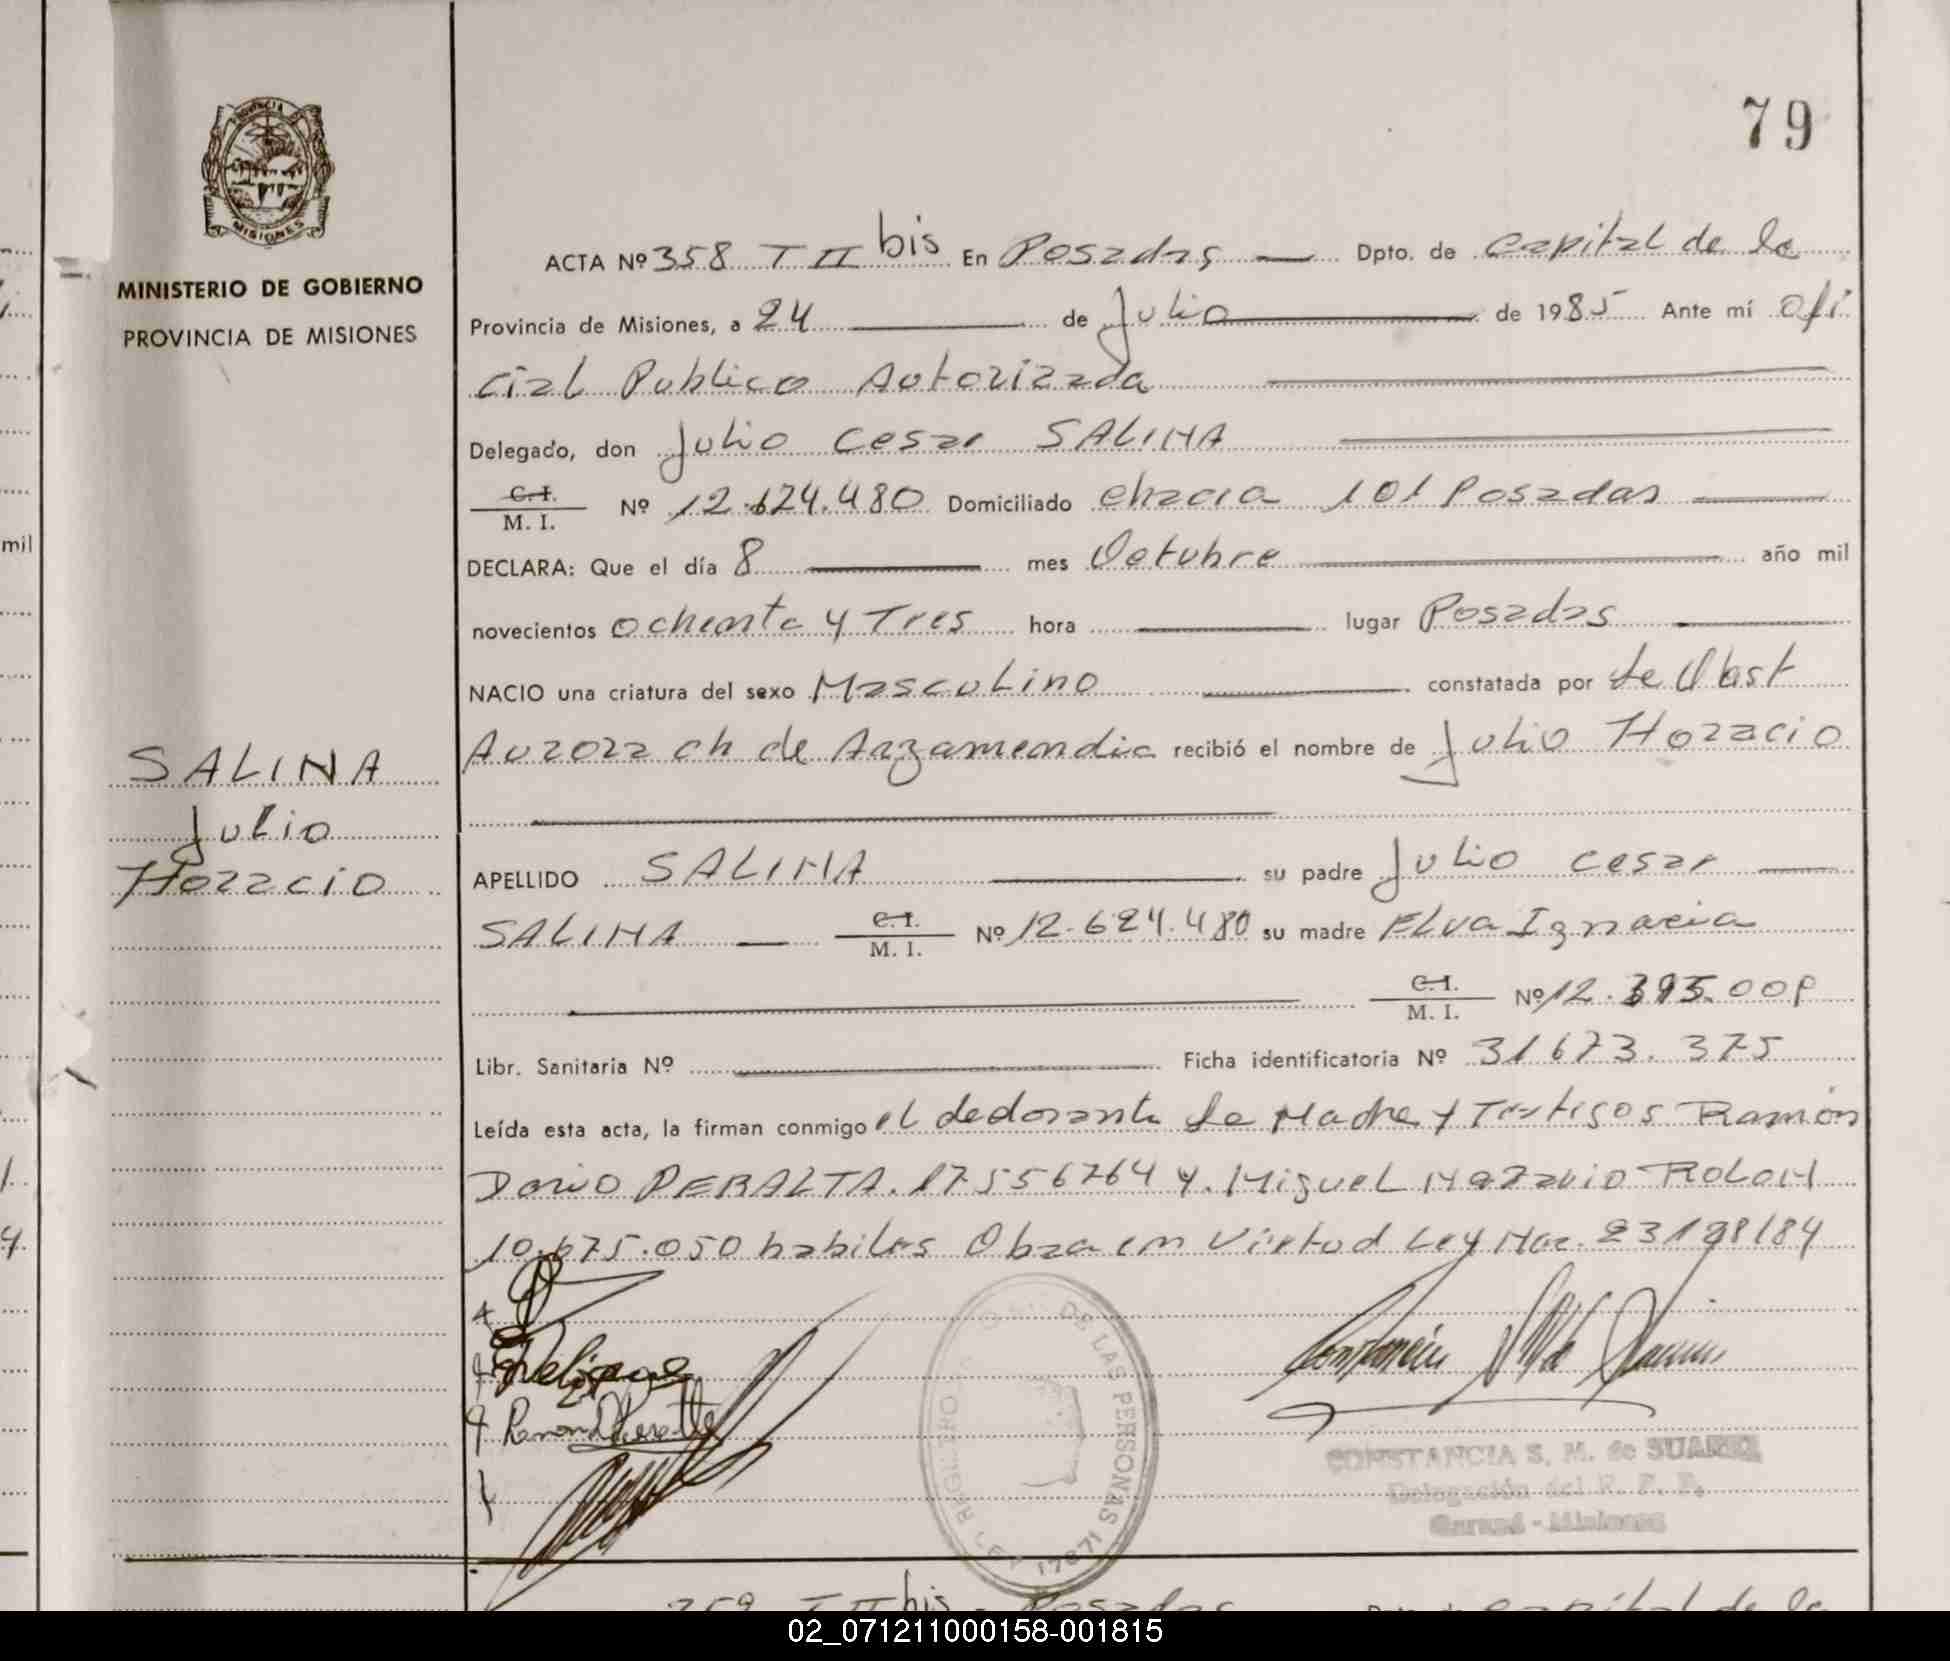 79
PROVINCIA DE
MISIONES
MINISTERIO DE GOBIERNO
PROVINCIA DE MISIONES
ACTA Nº 358 T II bis En Posadas Dpto. de Capital de la
Provincia de Misiones, a 24 de Julio de 1985 Ante mí Ofi
cial Publico Autorizada
Delegado, don Julio Cesar SALINA
C.I. M. I. Nº 12.624.480 Domiciliado Chacra 101 Posadas
DECLARA: Que el día 8 mes Octubre año mil
novecientos Ochenta y Tres hora lugar Posadas
NACIO una criatura del sexo Masculino constatada por
Aurora Ch de Arzamendia recibió el nombre de Julio Horacio
SALINA
Julio
Horacio
APELLIDO SALINA su padre Julio Cesar
SALINA C.I. M. I. Nº 12.624.480 su madre Elva Ignacia
C.I. M. I. Nº 12.
Libr. Sanitaria Nº Ficha identificatoria Nº 31673.375
Leída esta acta, la firman conmigo el declarante La Madre y Testigos Ramón
Dario PERALTA. 17556764 y. Miguel Nazario ROLON
10.675.050 habiles Obra en Virtud Ley Nac.
DE LAS PERSONAS
CONSTANCIA S. M. de SUAREZ
Delegación del R. P. P.
- Misiones
359 T II bis Posadas Capital de la
02_071211000158-001815